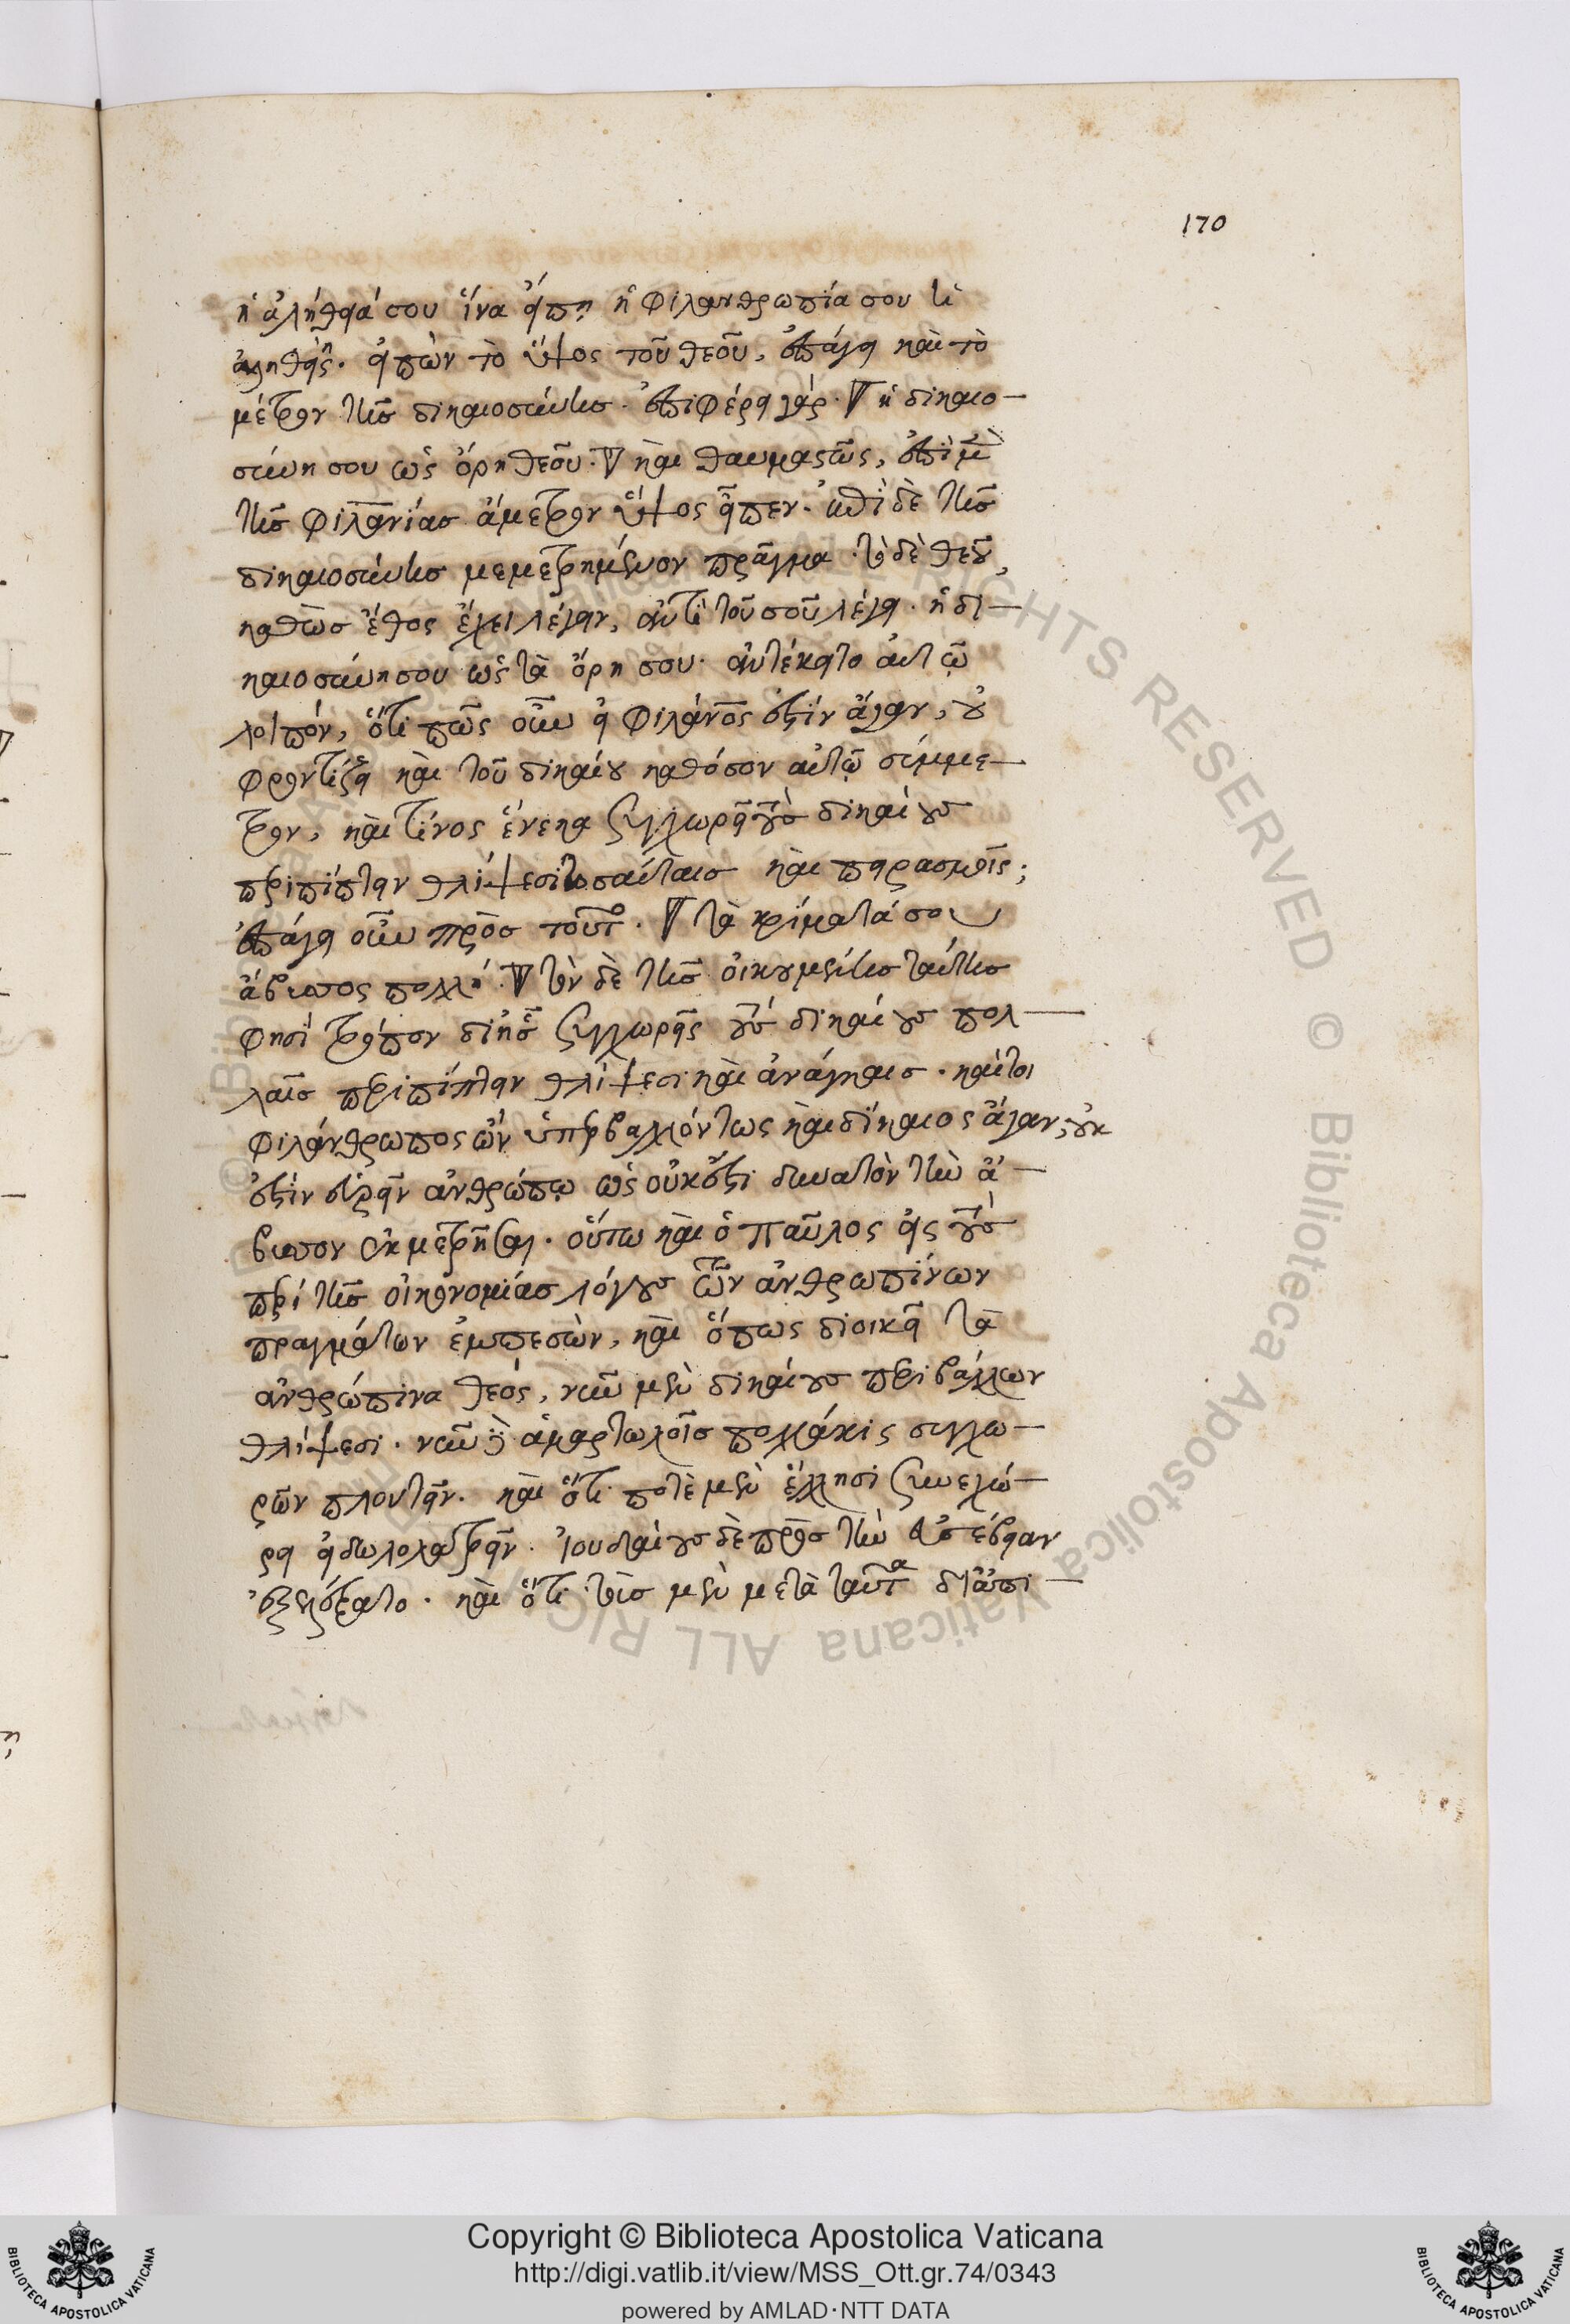 170
ἡ ἀλήθειά σου ἵνα εἴπη ἡ φιλανθρωπία σου ἡ
ἀληθής. εἰπὼν τὸ ὕψος τοῦ θεοῦ, ἐπάγει καὶ τὸ
μέτρον τῆς δικαιοσύνης. ἐπιφέρει γάρ. ἡ δικαιο
σύνη σου ὡς ὄρη θεοῦ. καὶ θαυμαστῶς, ἐπὶ μὲν
τῆς φιλανίας ἄμετρον ὕψος εἶπεν. ἐπὶ δὲ τῆς
δικαιοσύνης μεμετρημένον πρᾶγμα. τὸ δὲ θεοῦ,
καθὼς ἔθος ἔχει λέγειν, ἀντὶ τοῦ σοῦ λέγει. ἡ δι
καιοσύνη σου ὡς τὰ ὄρη σου. ἀντέκειτο αὐτῷ
λοιπόν, ὅτι πῶς οὖν εἰ φιλάνος ἐστὶν ἄγαν, οὐ
φροντίζει καὶ τοῦ δικαίου καθόσον αὐτῷ σύμμε
τρον, καὶ τίνος ἕνεκα συγχωρεῖ τοὺς δικαίους
περιπίπτειν θλίψεσι τοσαύταις καὶ πειρασμοῖς;
ἐπάγει οὖν πρὸς τοῦτο. τὰ κρίματά σου
ἄβυσσος πολλή. τὸν δὲ τῆς οἰκουμένης ταύτης
φησὶ τρόπον δι' ἧς συγχωρεῖς τοὺς δικαίους πολ
λαῖς περιπίπτειν θλίψεσι καὶ ἀνάγκαις. καίτοι
φιλάνθρωπος ὢν ὑπερβαλλόντως καὶ δίκαιος ἄγαν, οὐκ
ἐστὶν εὑρεῖν ἀνθρώπῳ ὡς οὐκ ἔστι δυνατὸν τὴν ἄ
βυσσον ἐκμετρῆσαι. οὕτω καὶ ὁ παῦλος εἰς τοὺς
περὶ τῆς οἰκονομίας λόγους τῶν ἀνθρωπίνων
πραγμάτων ἐμπεσὼν, καὶ ὅπως διοικεῖ τὰ
ἀνθρώπινα θεός, νῦν μὲν δικαίους περιβάλλων
θλίψεσι. νῦν δὲ ἁμαρτωλοῖς πολλάκις συγχω
ρῶν πλουτεῖν. καὶ ὅτι ποτὲ μὲν ἕλλησι συνεχώ
ρει εἰδωλολατρεῖν. ἰουδαίους δὲ πρὸς τὴν εὐσέβειαν
ἐξελέξατο. καὶ ὅτι τοῖς μὲν μετὰ ταῦτα δι' ἀπι